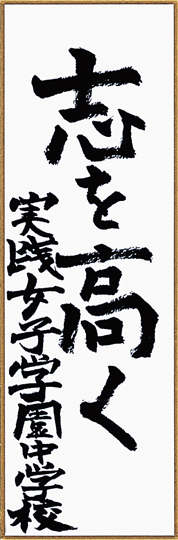 志を高く
実践女子学園中学校